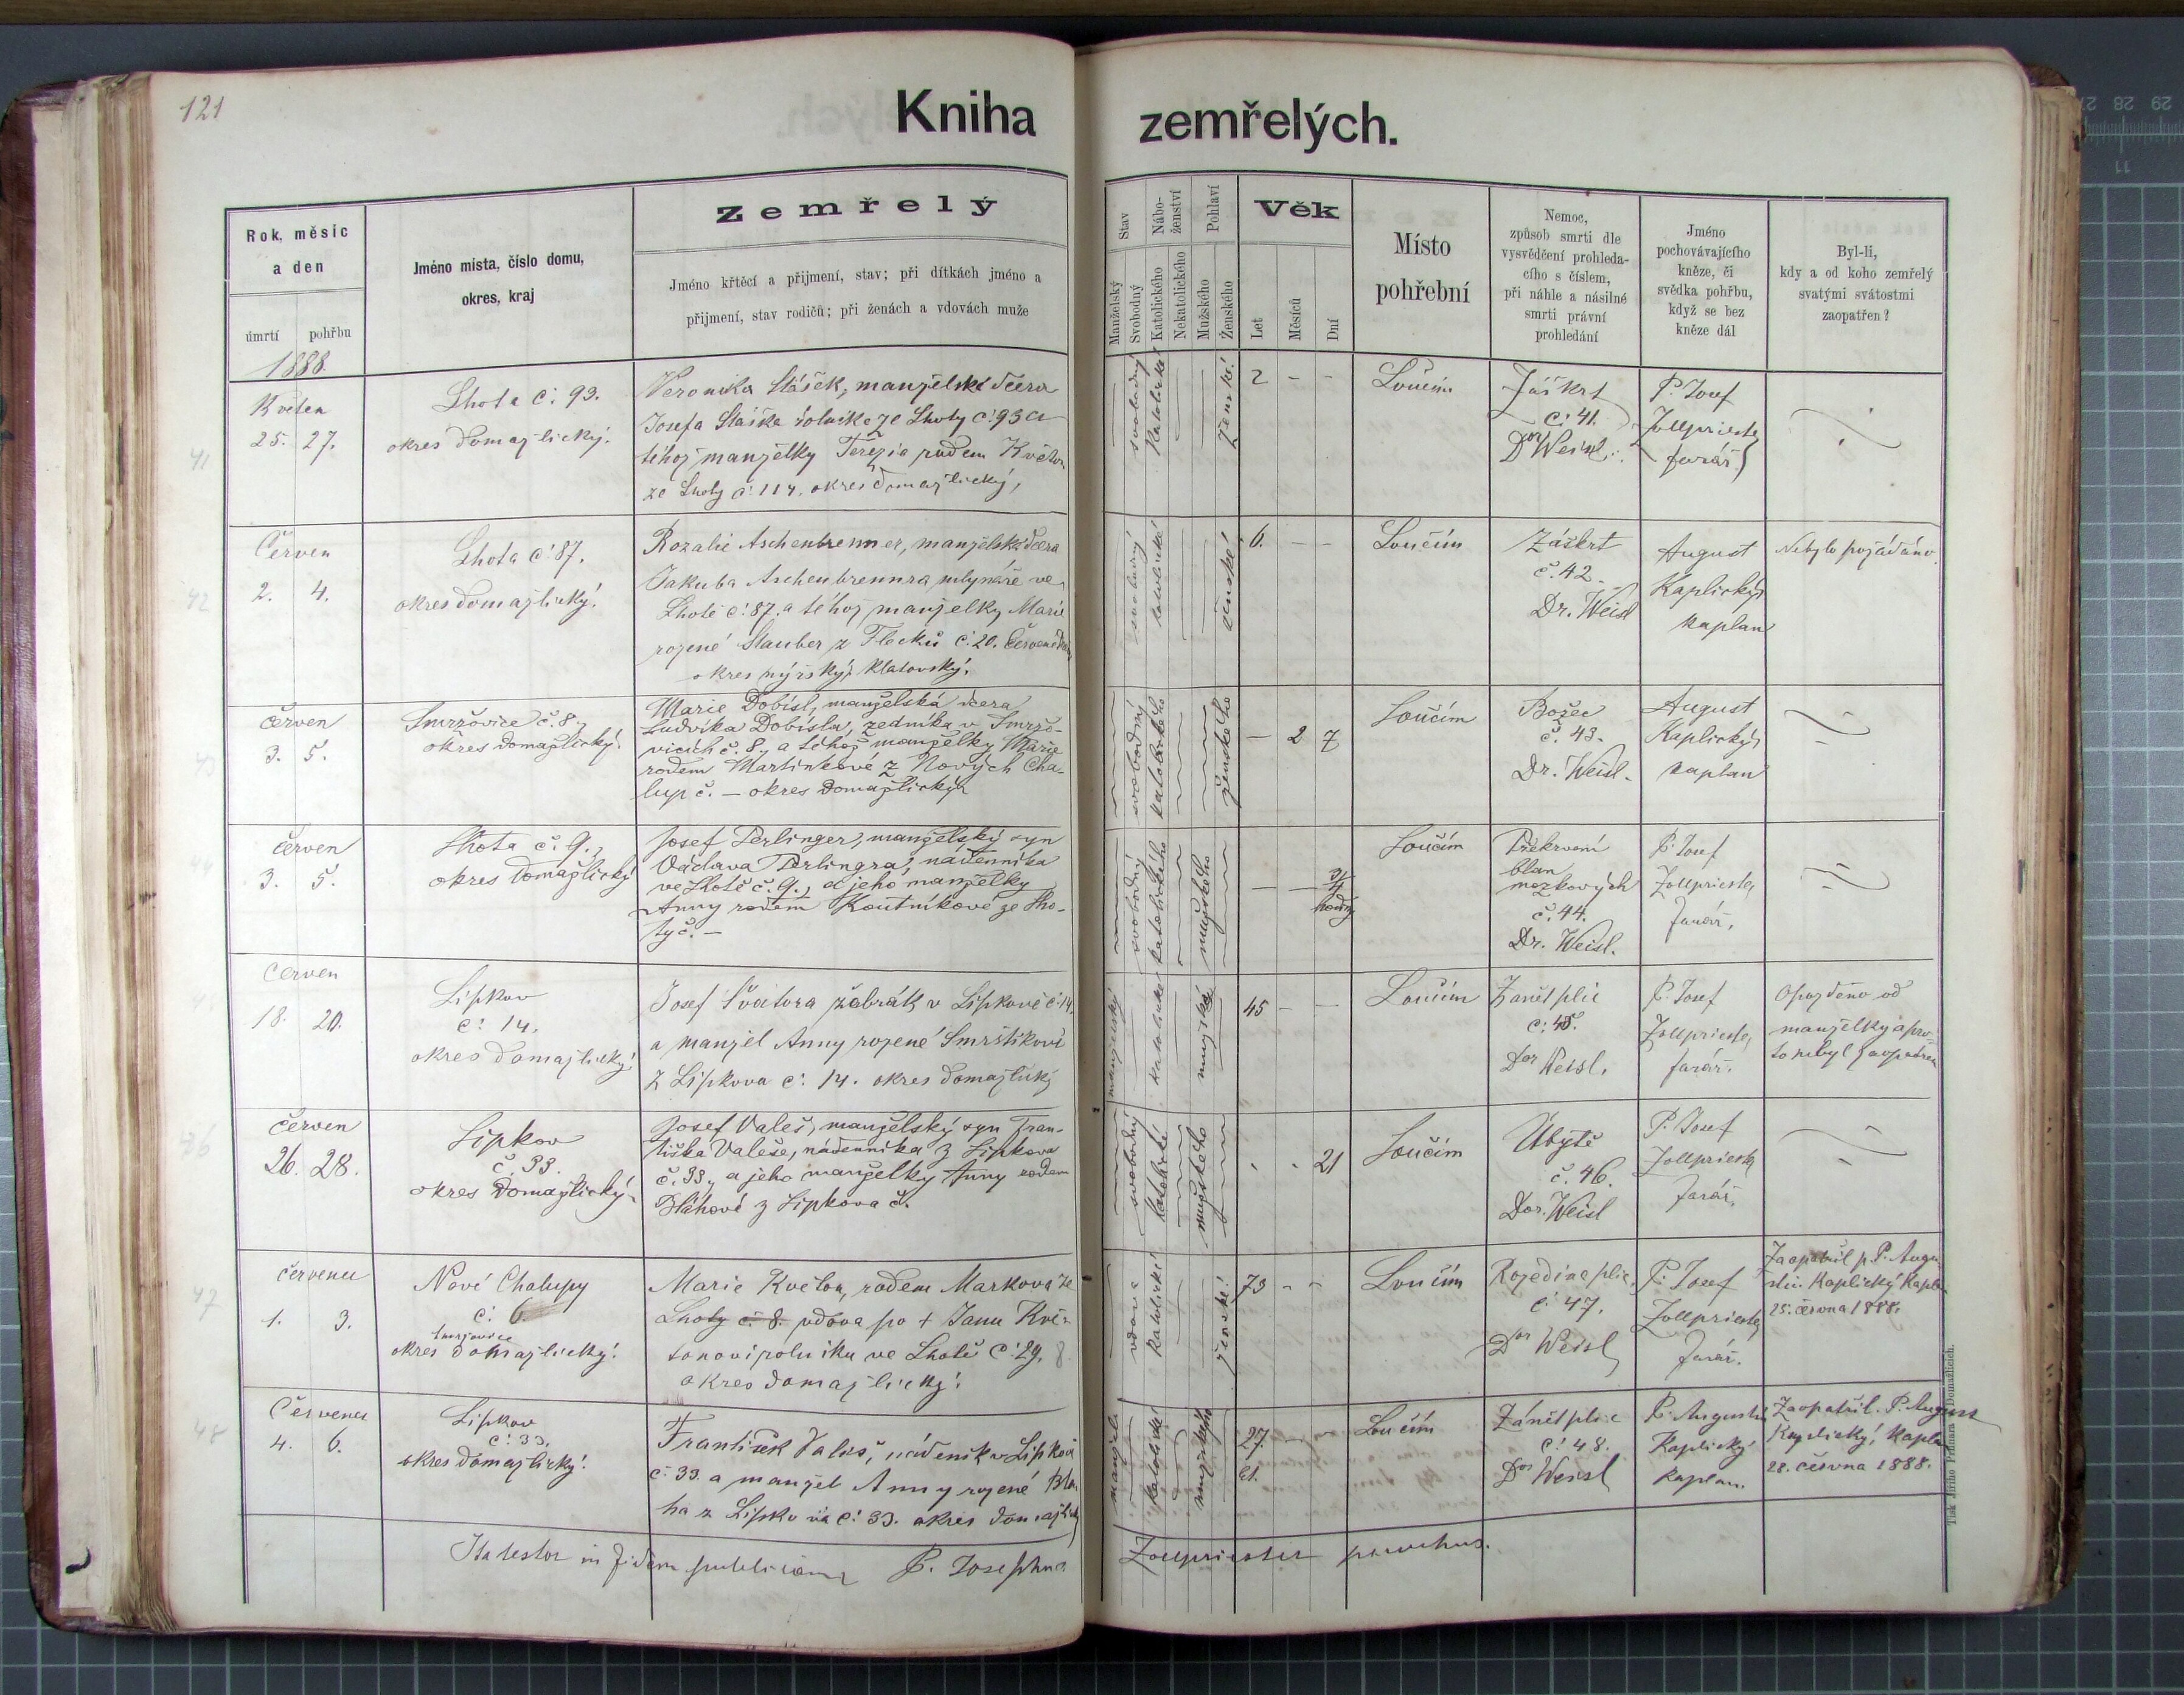 121
Kniha zemřelých.
Rok, měsíc
a den
úmrtí pohřbu
Jméno místa, číslo domu,
okres, kraj
Zemřelý
Jméno křtěcí a přijmení, stav; při dítkách jméno a
přijmení, stav rodičů; při ženách a vdovách muže
Stav
Nábo-
ženství
Pohlaví
Manželský
Svobodný
Katolického
Nekatolického
Mužského
Ženského
Věk
Let
Měsíců
Dní
Místo
pohřební
Nemoc,
způsob smrti dle
vysvědčení prohleda-
cího s číslem,
při náhle a násilné
smrti právní
prohledání
Jméno
pochovávajícího
kněze, či
svědka pohřbu,
když se bez
kněze dál
Byl-li,
kdy a od koho zemřelý
svatými svátostmi
zaopatřen?
1888.
41
Květen
25. 27.
Lhota č. 93.
okres domažlický.
Veronika Stášek, manželská dcera
Josefa Stáška ze Lhoty č. 93 a
téhož manželky Terezie rodem Květon
ze Lhoty č. 114. okres domažlický,
svobodný
katolické
ženské.
2 - -
Loučim
Záškrt
č. 41.
Dor Weisl.
P. Josef
Zollpriester
farář
42
Červen
2. 4.
Lhota č. 87.
okres domažlický.
Rozalie Aschenbrenner, manželská dcera
Jakuba Aschenbrennra mlynáře ve
Lhotě č. 87. a téhož manželky Marie
rozené Stauber z Flecků č. 20.
okres nýrský, klatovský.
svobodný
katolické
ženské
6. - -
Loučím
Záškrt
č. 42.
Dr. Weisl
August
Kaplický,
kaplan
Nebylo požádáno.
43
červen
3. 5.
Smržovice č. 8,
okres domažlický.
Marie Dobisl, manželská dcera
Ludvíka Dobisla, zedníka v Smržo-
vicích č. 8, a téhož manželky Marie
rodem Martinkové z Nových Cha-
lup č. — okres domažlický.
svobodný
katolického
ženského
— 2 7
Loučím
Božec
č. 43.
Dr. Weisl.
August
Kaplický,
kaplan
44
červen
3. 5.
Lhota č. 9.,
okres domažlický
Josef Perlinger, manželský syn
Václava Perlingra, nádenníka
ve Lhotě č. 9., a jeho manželky
Anny rodem Koutníkové ze Lho-
ty č. —
svobodný
katolického
mužského
— — 3/4 hodiny
Loučím
Překrvení
blan
mozkových
č. 44.
Dr. Weisl.
P. Josef
Zollpriester,
farář.
červen
18. 20.
Lipkov
č. 14.
okres domažlický.
Josef Švatora žebrák v Lipkově č. 14.
a manžel Anny rozené Smrštíkové
z Lipkova č. 14. okres domažlický
manželský
katolické
mužské
45 - -
Loučím
Zánět plic
č. 45.
Dor Weisl.
P. Josef
Zollpriester,
farář.
Opozděno od
manželky a pro-
to nebyl zaopatřen
46
červen
26. 28.
Lipkov
č. 33.
okres domažlický.
Josef Valeš, manželský syn Fran-
tiška Valeše, nádenníka z Lipkova
č. 33, a jeho manželky Anny rodem
Bláhové z Lipkova č.
svobodný
katolické
mužského
21
Loučím
Úbytě
č. 46.
Dor. Weisl
P. Josef
Zollpriester
farář.
47
červenec
1. 3.
Nové Chalupy
č. 6.
Smržovice
okres domažlický.
Marie Květon, rodem Markova ze
Lhoty č. 8. vdova po + Janu Kvě-
tonovi rolníku ve Lhotě č. 29. 8
okres domažlický.
vdova
katolické
ženské.
73 - -
Loučím
Rozedma plic,
č. 47.
Dor Weisl
P. Josef
Zollpriester
farář.
Zaopatřil p. P. Augu-
stin Kaplický Kaplan
25. června 1888.
48
Červenec
4. 6.
Lipkov
č. 33.
okres domažlický.
František Valeš, nádeník v Lipkově
č. 33. a manžel Anny rozené Blá-
ha z Lipkova č. 33. okres domažlický
manžel
katolické
mužského
27. — -
let.
Loučím
Zánět plic
č. 48.
Dor Weisl
P. Augustin
Kaplický
kaplan.
Zaopatřil P. August
Kaplický, kaplan
28. června 1888.
Ita testor in fidem publicam P. Josephus Zollpriester parochus.
Tisk Jiřího Prunara v Domažlicích.
29 28 27
11